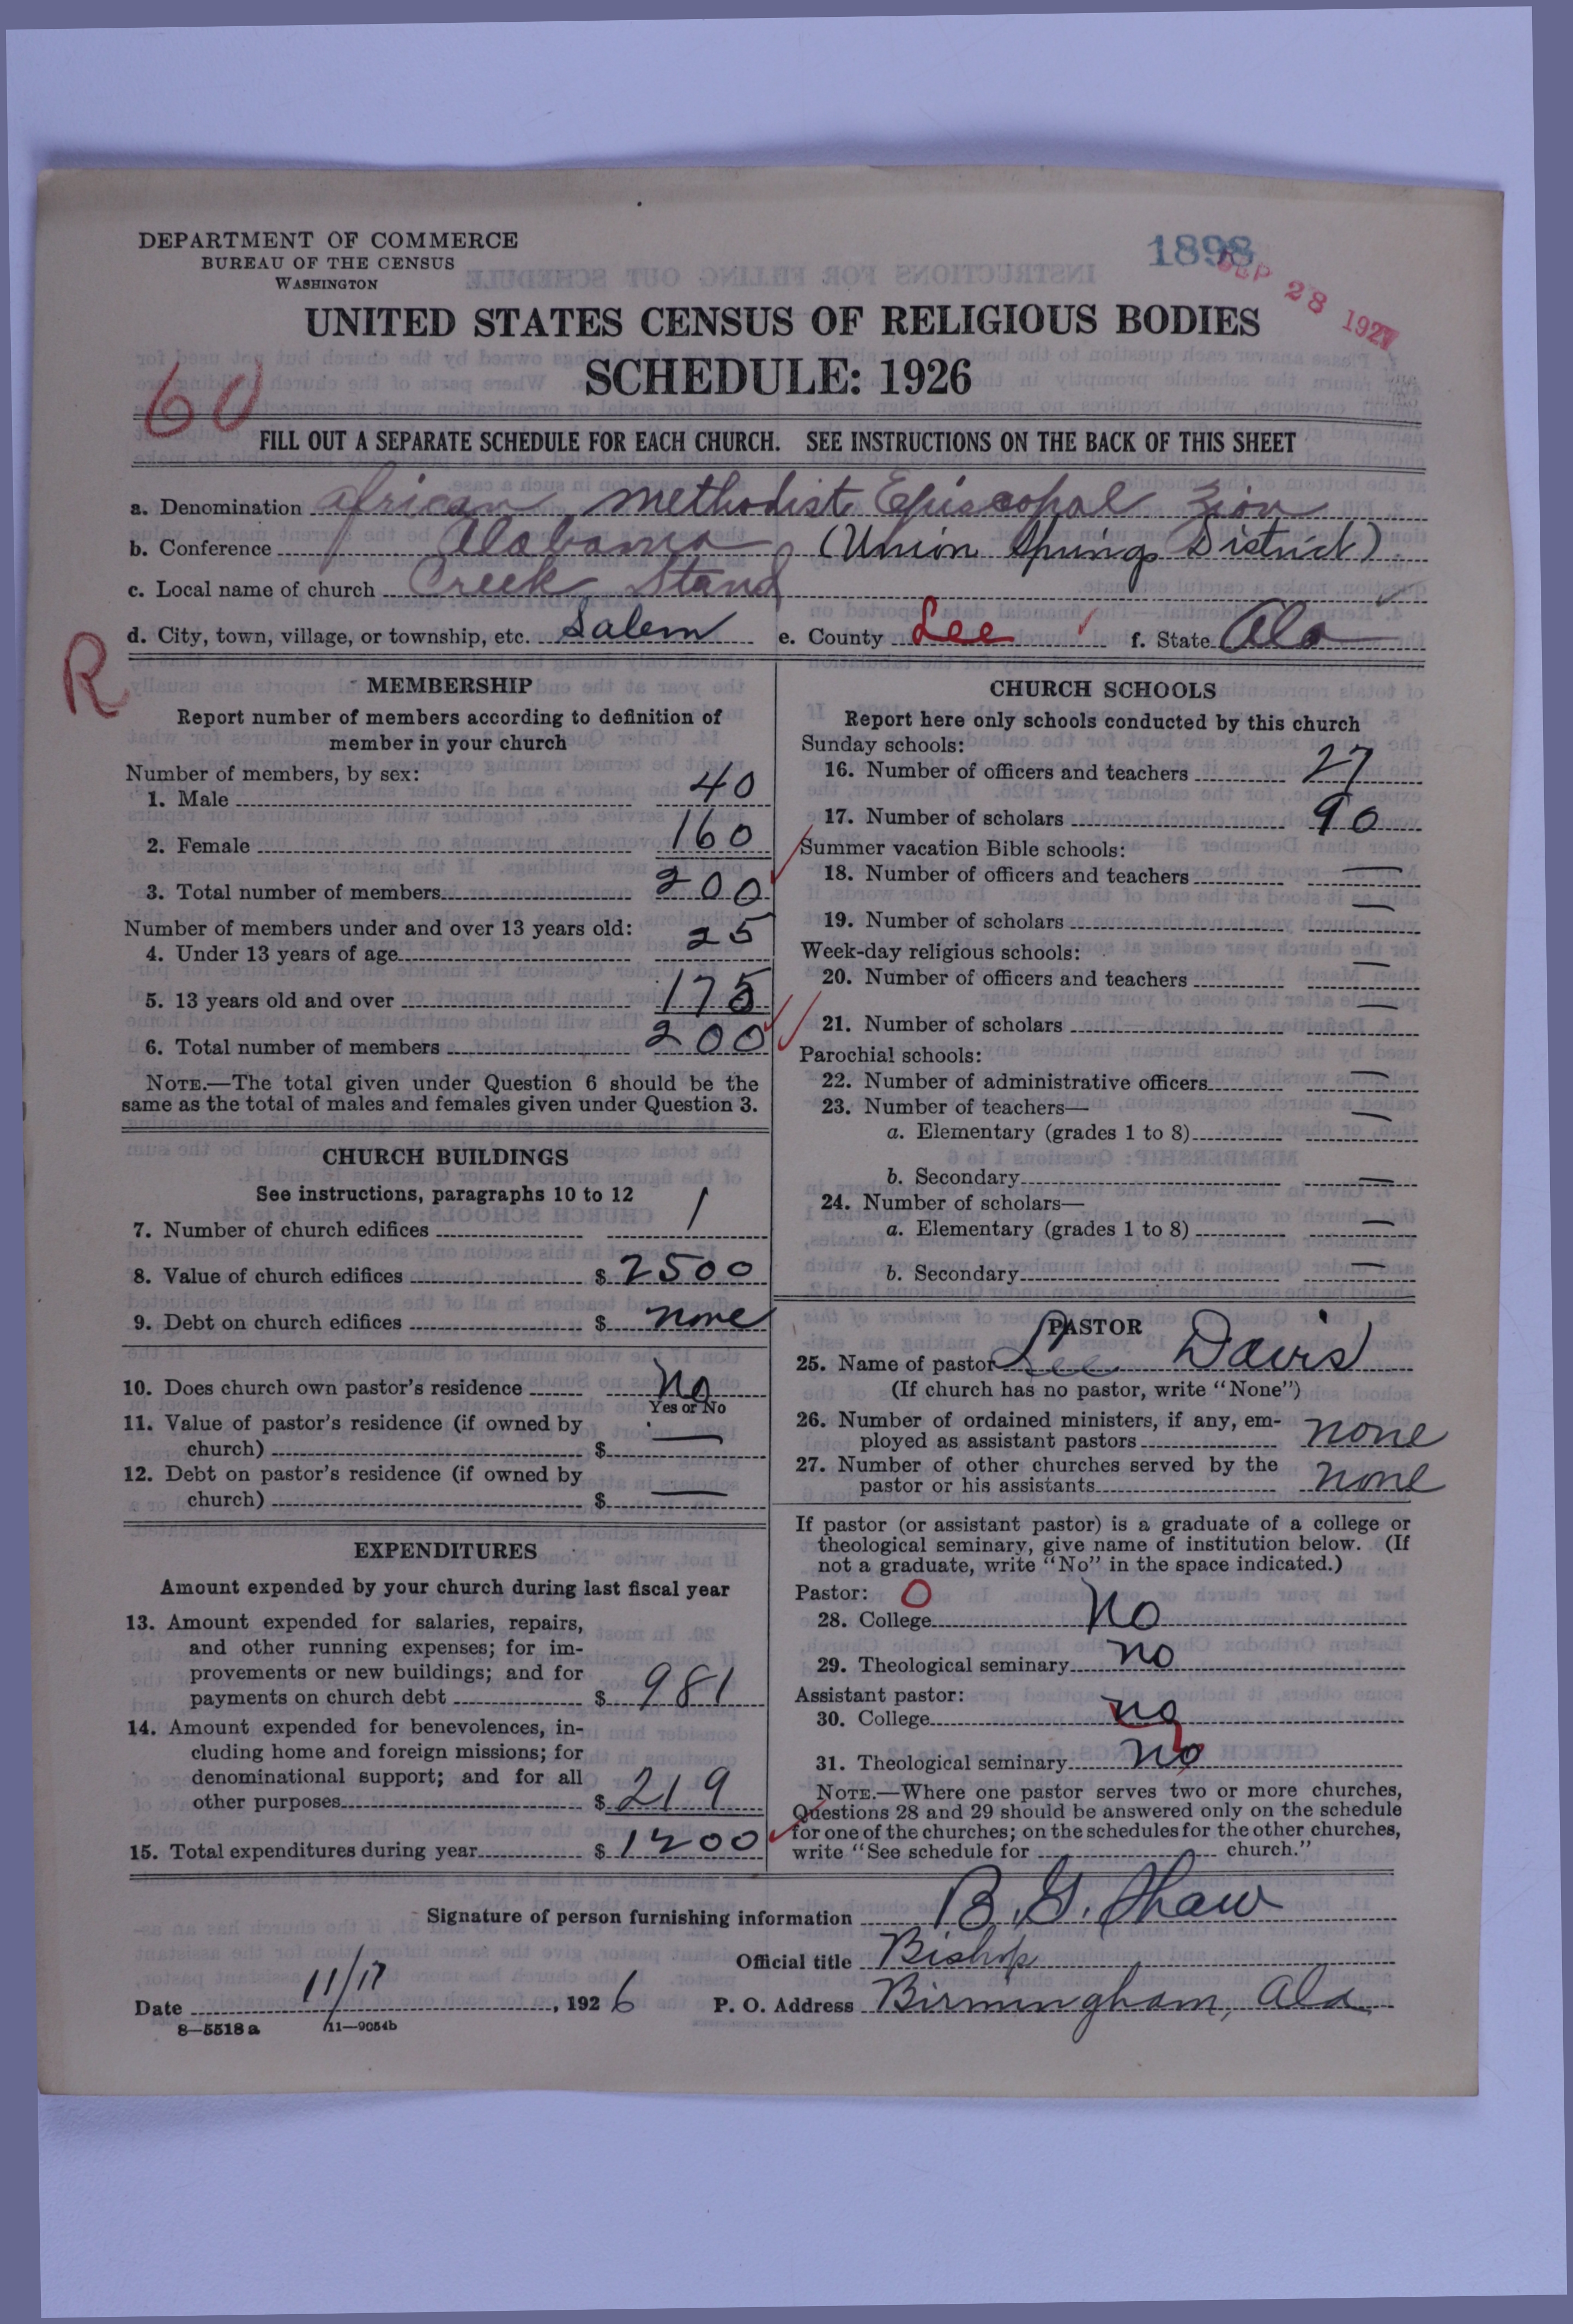 DEPARTMENT OF COMMERCE
BUREAU OF THE CENSUS
WASHINGTON
1898
SEP 28 1927
UNITED STATES CENSUS OF RELIGIOUS BODIES
SCHEDULE: 1926
60
FILL OUT A SEPARATE SCHEDULE FOR EACH CHURCH. SEE INSTRUCTIONS ON THE BACK OF THIS SHEET
a. Denomination African Methodist Episcopal Zion
b. Conference Alabama (Union Springs District)
c. Local name of church Creek Stand
d. City, town, village, or township, etc. Salem e. County Lee f. State Ala
R
MEMBERSHIP
Report number of members according to definition of
member in your church
Number of members, by sex:
1. Male 40
2. Female 160
3. Total number of members 200
Number of members under and over 13 years old:
4. Under 13 years of age 25
5. 13 years old and over 175
6. Total number of members 200
NOTE.—The total given under Question 6 should be the
same as the total of males and females given under Question 3.
CHURCH BUILDINGS
See instructions, paragraphs 10 to 12
7. Number of church edifices 1
8. Value of church edifices $ 2500
9. Debt on church edifices $ none
10. Does church own pastor's residence No
Yes or No
11. Value of pastor's residence (if owned by
church) $ —
12. Debt on pastor's residence (if owned by
church) $ —
EXPENDITURES
Amount expended by your church during last fiscal year
13. Amount expended for salaries, repairs,
and other running expenses; for im-
provements or new buildings; and for
payments on church debt $ 981
14. Amount expended for benevolences, in-
cluding home and foreign missions; for
denominational support; and for all
other purposes $ 219
15. Total expenditures during year $ 1200
CHURCH SCHOOLS
Report here only schools conducted by this church
Sunday schools:
16. Number of officers and teachers 27
17. Number of scholars 90
Summer vacation Bible schools:
18. Number of officers and teachers —
19. Number of scholars —
Week-day religious schools:
20. Number of officers and teachers —
21. Number of scholars —
Parochial schools:
22. Number of administrative officers —
23. Number of teachers—
a. Elementary (grades 1 to 8) —
b. Secondary —
24. Number of scholars—
a. Elementary (grades 1 to 8) —
b. Secondary —
PASTOR
25. Name of pastor Lee Davis
(If church has no pastor, write "None")
26. Number of ordained ministers, if any, em-
ployed as assistant pastors none
27. Number of other churches served by the
pastor or his assistants none
If pastor (or assistant pastor) is a graduate of a college or
theological seminary, give name of institution below. (If
not a graduate, write "No" in the space indicated.)
Pastor: O
28. College No
29. Theological seminary no
Assistant pastor:
30. College no
31. Theological seminary no
NOTE.—Where one pastor serves two or more churches,
Questions 28 and 29 should be answered only on the schedule
for one of the churches; on the schedules for the other churches,
write "See schedule for church."
Signature of person furnishing information B. G. Shaw
Official title Bishop
Date 11/17, 1926 P. O. Address Birmingham, Ala
8—5518 a 11—9054b